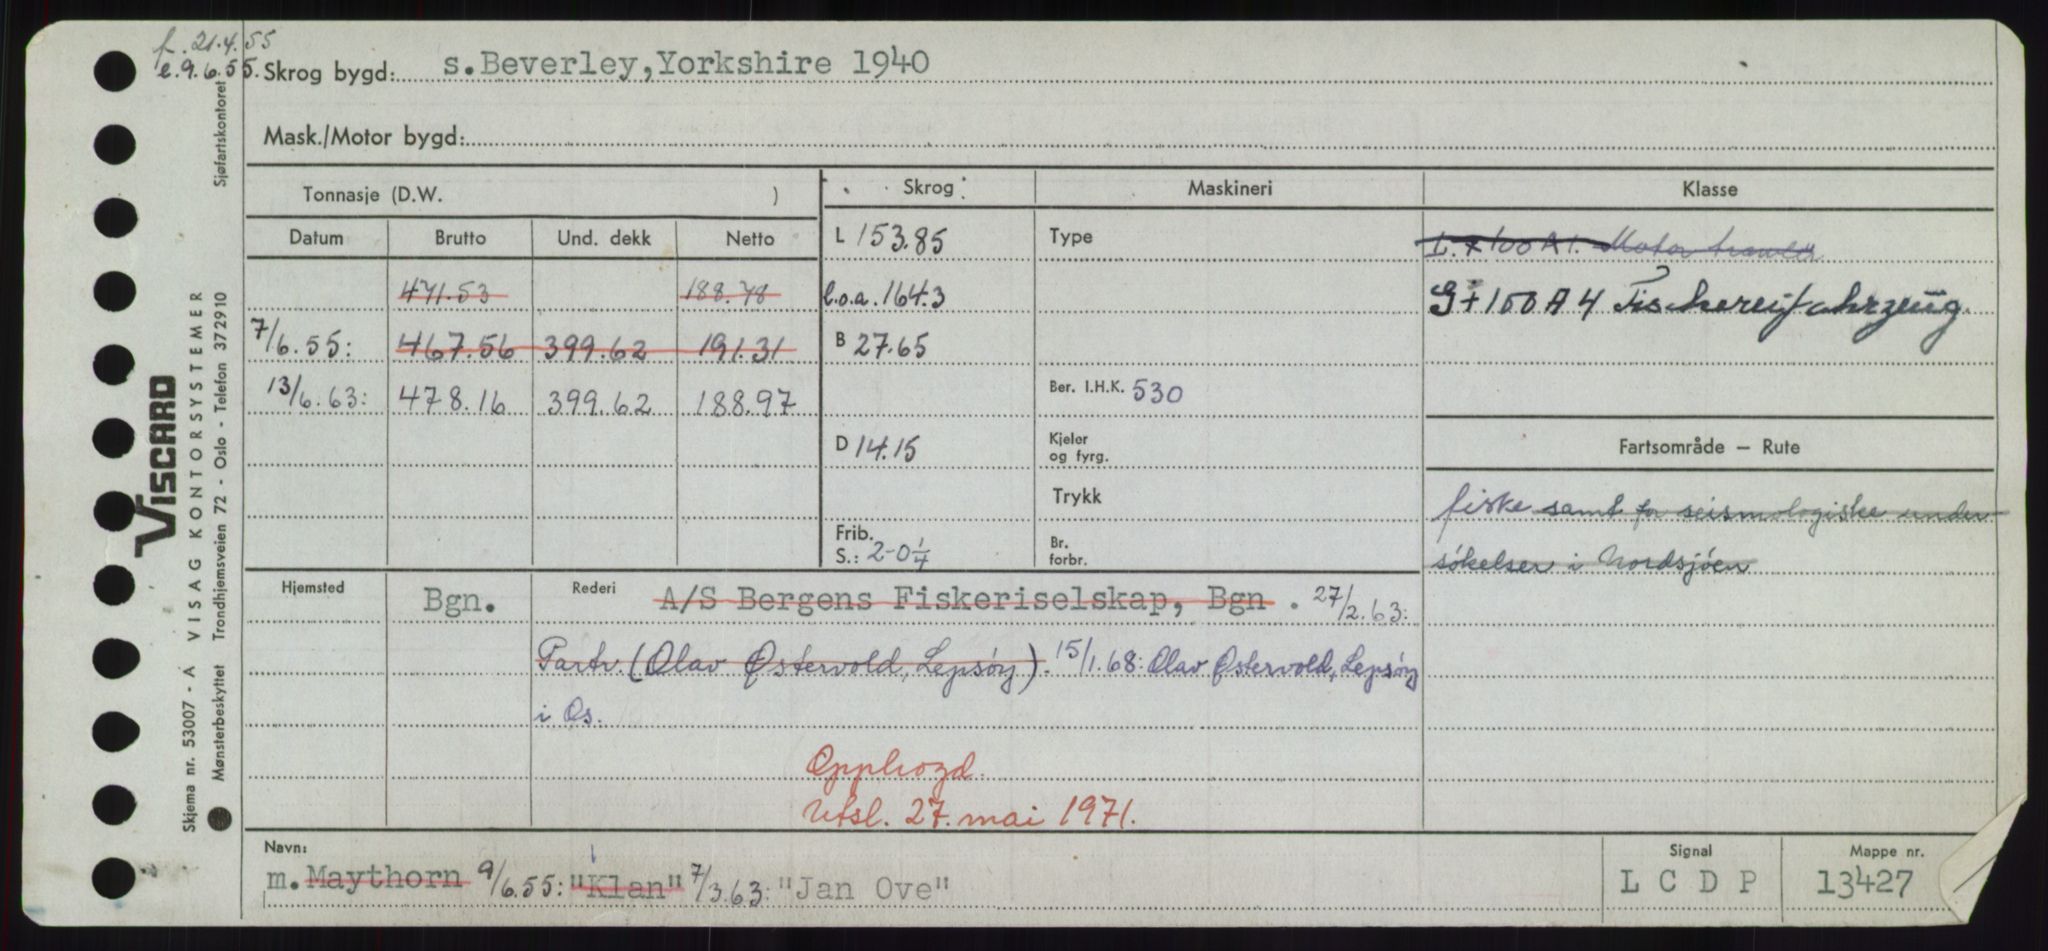 f. 21.4.55
e. 9.6.55. Skrog bygd: s.Beverley,Yorkshire 1940
Mask./Motor bygd:
Tonnasje (D.W. )
Skrog
Maskineri
Klasse
Datum Brutto Und. dekk Netto
L 153.85
Type
L. + 100 A 1. Motor trawler
471.53 188.78
l.o.a. 164.3
G + 100 A 4 Fischereifahrzeug.
7/6.55: 467.56 399.62 191.31
B 27.65
13/6.63: 478.16 399.62 188.97
Ber. I.H.K. 530
D 14.15
Kjeler og fyrg.
Fartsområde — Rute
Trykk
fiske samt for seismologiske under
Frib. S.: 2-0¼
Br. forbr.
søkelser i Nordsjøen
Hjemsted Bgn. Rederi A/S Bergens Fiskeriselskap, Bgn . 27/2.63:
Partr. (Olav Østervold, Lepsøy). 15/1.68: Olav Østervold, Lepsøy
i Os.
Opphogd.
Utsl. 27. mai 1971.
Navn:
m. Maythorn 9/6.55: "Klan" 7/3.63: "Jan Ove"
Signal
L C D P
Mappe nr.
13427
Skjema nr. 53007 - A VISAG KONTORSYSTEMER
VISCARD
Mønsterbeskyttet Trondhjemsveien 72 - Oslo - Telefon 372910
Sjøfartskontoret